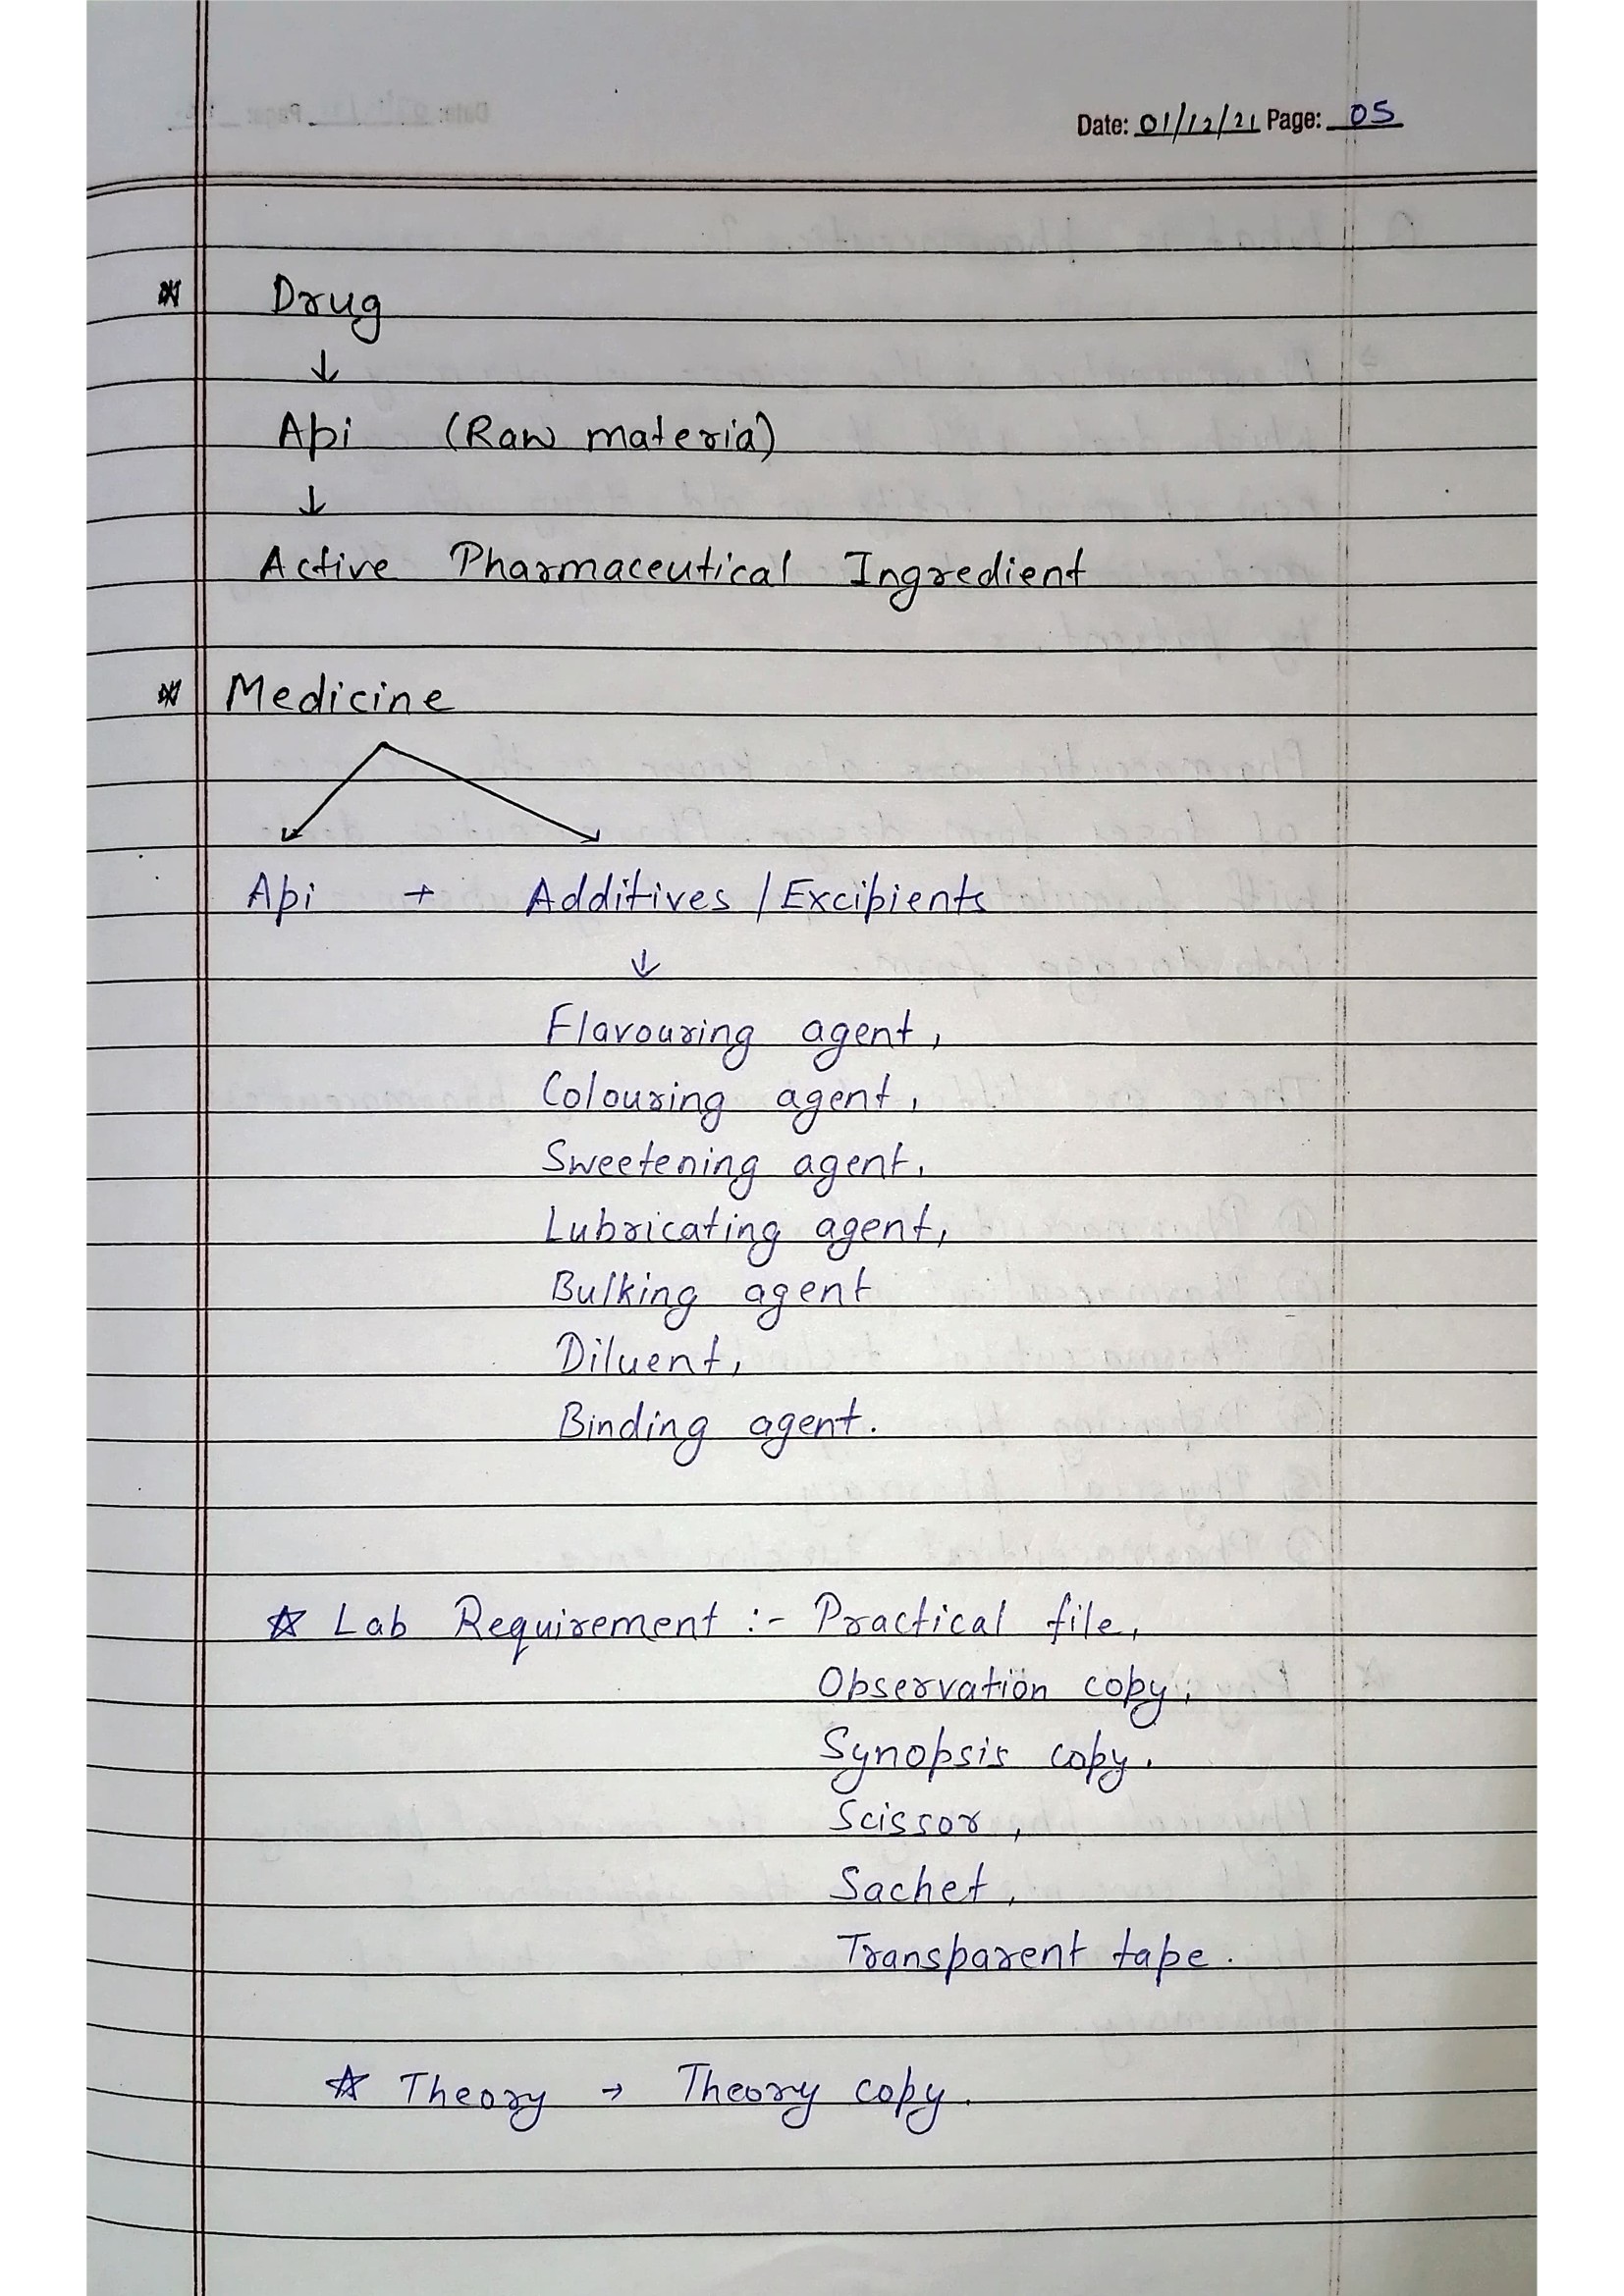 Date: 01/12/21 Page: 05
* Drug
↓
Api (Raw materia)
↓
Active Pharmaceutical Ingredient
* Medicine
Api + Additives / Excipients
↓
Flavouring agent,
Colouring agent,
Sweetening agent,
Lubricating agent,
Bulking agent
Diluent,
Binding agent.
☆ Lab Requirement :- Practical file,
Observation copy,
Synopsis copy.
Scissor,
Sachet,
Transparent tape.
☆ Theory → Theory copy.